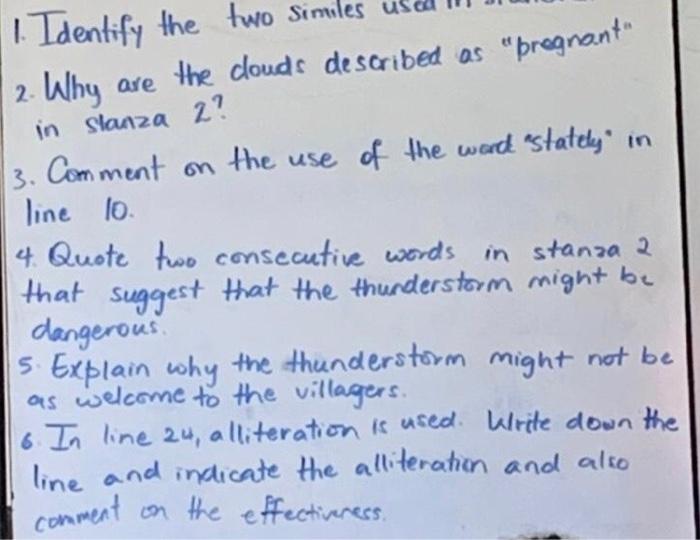 1. Identify the two similes used in
2. Why are the clouds described as "pregnant"
in stanza 2?
3. Comment on the use of the word "stately" in
line 10.
4. Quote two consecutive words in stanza 2
that suggest that the thunderstorm might be
dangerous.
5. Explain why the thunderstorm might not be
as welcome to the villagers.
6. In line 24, alliteration is used. Write down the
line and indicate the alliteration and also
comment on the effectiveness.